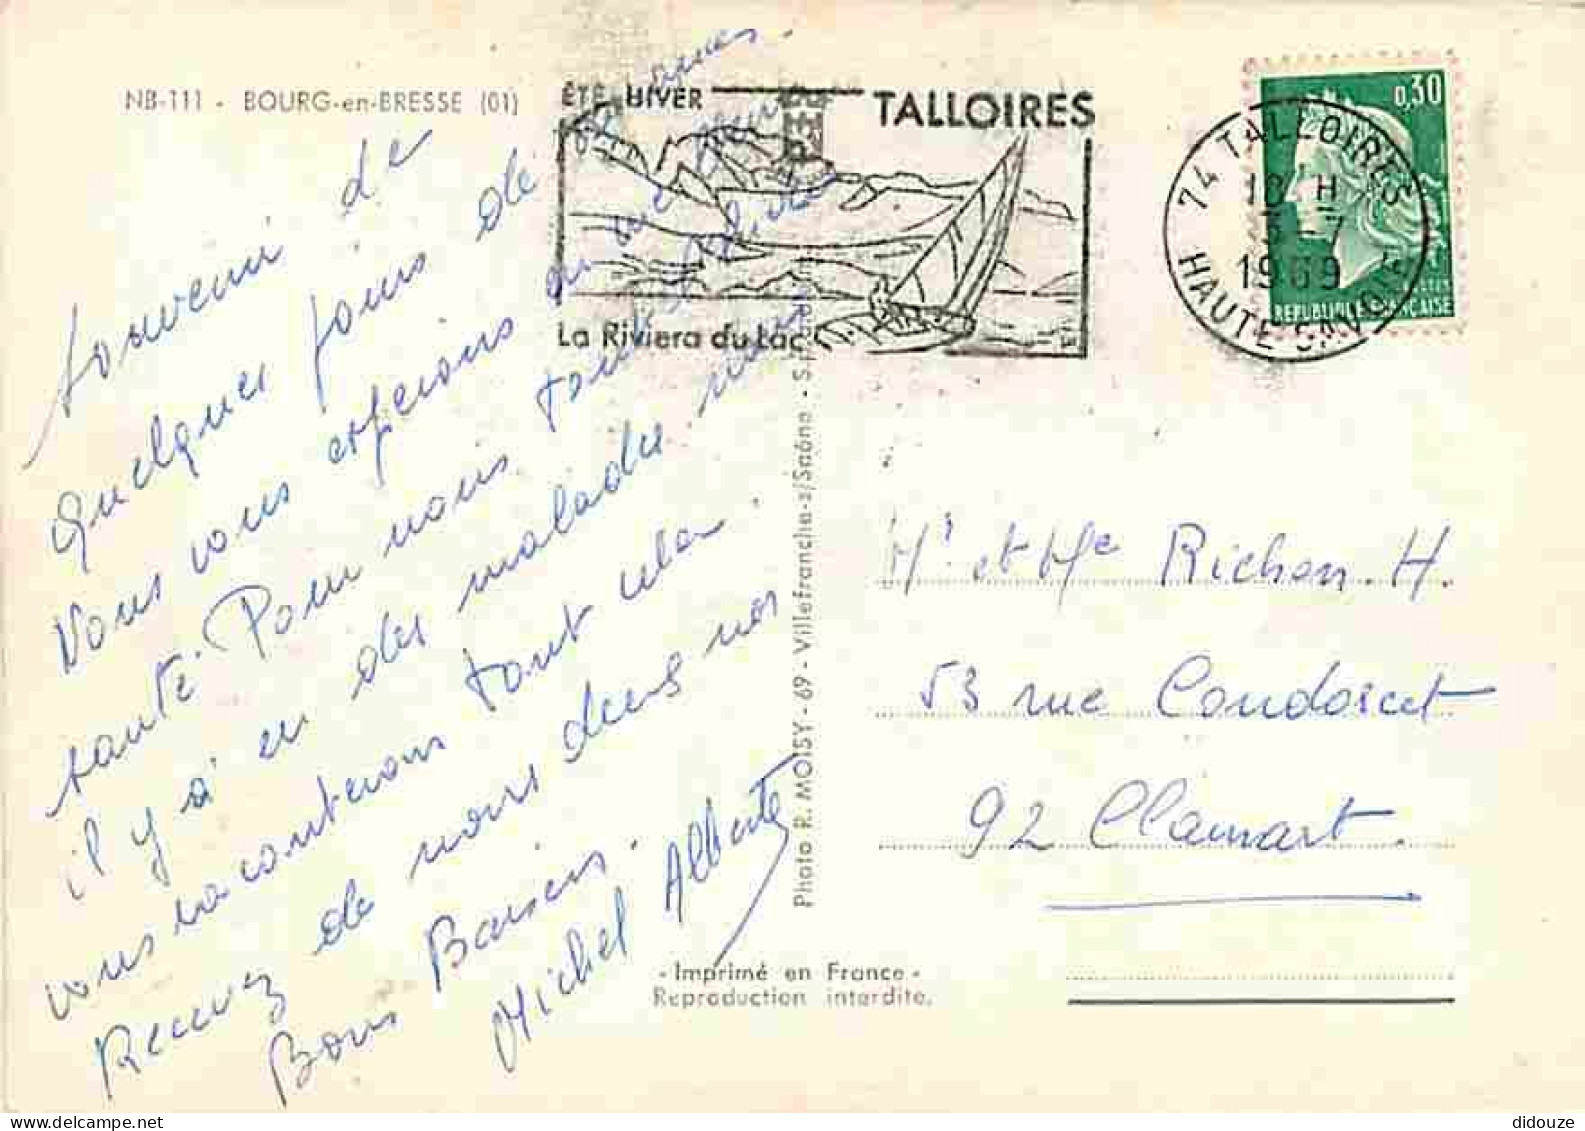 NB-111 - BOURG-en-BRESSE (01)
ÉTÉ HIVER
TALLOIRES
La Riviera du Lac
0,30
REPUBLIQUE FRANÇAISE
74 TALLOIRES
18 H
5-7
1969
HAUTE-SAVOIE
Souvenir de
quelques jours de
Vous vous espérons en meilleure
santé. Pour nous tout
il y a en des malades nous
vous raconterons tout cela.
Recevez de nous deux nos
Bons Baisers.
Michel Alberte
Photo R. MOISY - 69 - Villefranche-s/Saône
- Imprimé en France -
Reproduction interdite.
Mr et Me Richon. H.
53 rue Condorcet
92 Clamart.
didouze